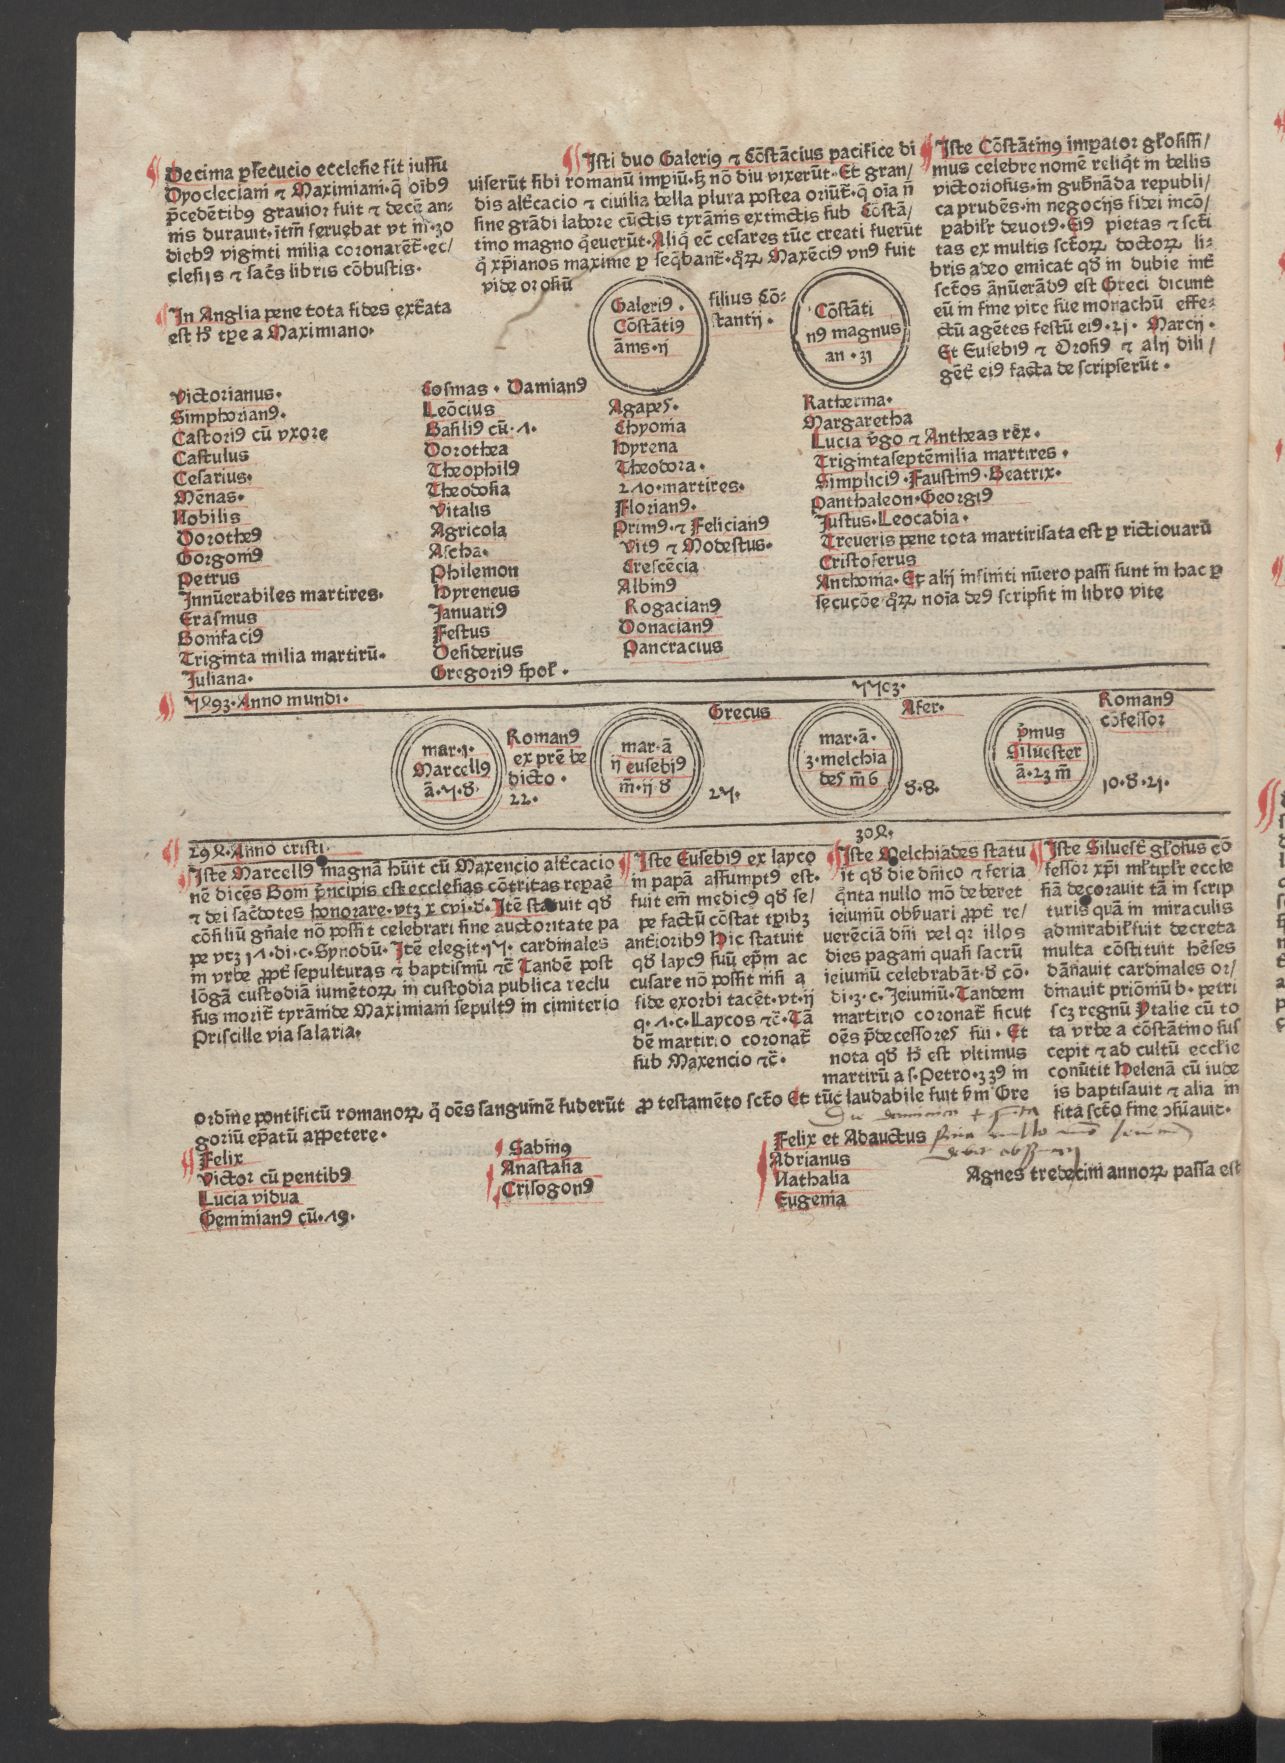 Decima ꝑsecucio ecclesie fit iussu
Dyocleciani ⁊ Maximiani·q̄ oib9
p̄cedētib9 grauior fuit ⁊ decē an-
nis durauit·itm̄ seruebat vt in·30
dieb9 viginti milia coronarēt̄·ec/
clesijs ⁊ sac̄s libris cōbustis·
In Anglia pene tota fides extīata
est h̄ tꝑe a Maximiano·
Isti duo Galeri9 ⁊ Cōstācius pacifice di
uiserūt sibi romanū imꝑiū·ꝫ nō diu vixerūt·Et gran/
dis alt̄cacio ⁊ ciuilia bella plura postea oriūt̄·q̄ oīa n̄
sine grādi labore cūctis tyrānis extinctis sub Cōstā/
tino magno q̄euerūt·Aliq̄ ec̄ cesares tūc creati fuerūt
q̄ xp̄ianos maxime ꝑ seq̄bant̄·q̄ꝝ Maxēci9 vn9 fuit
vide orosiū
Iste Cōstātin9 imꝑator gl̄osissi/
mus celebre nomē reliq̄t in bellis
victoriosus·in gub̄nāda republi/
ca prudēs·in negocijs fidei incō/
ꝑabilr̄ deuot9·Ei9 pietas ⁊ scti
tas ex multis sctoꝝ doctoꝝ li-
bris adeo emicat qd̄ in dubie int̄
sctos ānūerād9 est Greci dicunt
eū in fine vite sue monachū effe-
ctū agētes festū ei9·21· Marcij·
Et Eusebi9 ⁊ Orosi9 ⁊ alij dili/
gēt̄ ei9 facta de scripserūt·
Galeri9·
Cōstāti9
ānis·ij
filius Cō-
stantij·
Cōstāti
n9 magnus
an·31
Victorianus·
Simphorian9·
Castori9 cū vxore
Castulus
Cesarius·
Mēnas·
Nobilis
Dorothe9
Gorgoni9
Petrus
Innūerabiles martires·
Erasmus
Bonifaci9
Triginta milia martirū·
Juliana·
Cosmas·Damian9
Leōcius
Basili9 cū·Λ·
Dorothea
Theophil9
Theodosia
Vitalis
Agricola
Ascha·
Philemon
Hyreneus
Januari9
Festus
Desiderius
Gregori9 spol̄·
Agapes·
Chyonia
Hyrena
Theodora·
2Λ0·martires·
Florian9·
Prim9·⁊ Felician9
Vit9 ⁊ Modestus·
Crescēcia
Albin9
Rogacian9
Donacian9
Pancracius
Katherina·
Margaretha
Lucia v̄go ⁊ Antheas rēx·
Trigintaseptēmilia martires·
Simplici9·Faustin9·Beatrix·
Panthaleon·Georgi9
Justus·Leocadia·
Treueris pene tota martirisata est ꝑ rictiouarū
Cristoferus
Anthonia·Et alij infiniti nūero passi sunt in hac ꝑ
secuçōe·q̄ꝝ noīa de9 scripsit in libro vite
Λ893·Anno mundi·
ΛΛ03·
mar·1·
Marcell9
ā·Λ·8·
Roman9
ex prē be
dicto·
22·
mar·ā
ij eusebi9
m̄·ij 8
Grecus
2Λ·
mar·ā·
3·melchia
des m̄ 6
Afer·
8·8·
p̄mus
Siluester
ā·23 m̄
Roman9
cōfessor
10·8·21·
298·Anno cristi·
308·
Iste Marcell9 magnā h̄uit cū Maxencio alt̄cacio
nē dicēs Boni p̄ncipis est ecclesias cōtritas reꝑaē
⁊ dei sac̄dotes honorare·vtꝫ x̄ cvi·d·Itē statuit qd̄
cōsiliū gn̄ale nō possit celebrari sine auctoritate pa
pe vtꝫ 1Λ·di·c·Synodū·Itē elegit·1Λ·cardinales
in vrbe ꝓpt̄ sepulturas ⁊ baptismū ⁊c̄ Tandē post
lōgā custodiā iumētoꝝ in custodia publica reclu
sus morit̄ tyrānide Maximiani sepult9 in cimiterio
Priscille via salaria·
Iste Eusebi9 ex layco
in papā assumpt9 est·
fuit em̄ medic9 qd̄ se/
pe factū cōstat tꝑibꝫ
ant̄iorib9 Hic statuit
qd̄ layc9 suū ep̄m ac
cusare nō possit nisi a
fide exorbi tacēt̄·vt·ij
q·Λ·c·Laycos ⁊c̄·Tā
dē martirio coronat̄
sub Maxencio ⁊c̄·
Iste Melchiades statu
it qd̄ die dn̄ico ⁊ feria
q̄nta nullo mō deberet
ieiuniū obs̄uari ꝓpt̄ re/
uerēciā dn̄i vel qr̄ illos
dies pagani quasi sacrū
ieiuniū celebrabāt·d̄ cō·
di·3·c·Ieiuniū·Tandem
martirio coronat̄ sicut
oēs p̄decessores sui·Et
nota qd̄ h̄ est vltimus
martirū a s·Petro·339 in
Iste Siluest̄ gl̄osus cō
fessor xp̄i ml̄tiplr̄ eccle
siā decorauit tā in scrip
turis quā in miraculis
admirabilr̄ fuit decreta
multa cōstituit hēses
dānauit cardinales or/
dinauit priōmū b·petri
scꝫ regnū Ytalie cū to
ta vrbe a cōstātino sus
cepit ⁊ ad cultū ecclie
conūtit Helenā cū iude
is baptisauit ⁊ alia in
finita scto fine ↄsūauit·
ordine pontificū romanoꝝ q̄ oēs sanguinē fuderūt ꝓ testamēto scto Et tūc laudabile fuit v̄m Gre
goriū ep̄atū appetere·
Felix
Victor cū pentib9
Lucia vidua
Geminian9 cū·Λ9·
Sabin9
Anastasia
Crisogon9
Felix et Adauctus
Adrianus
Nathalia
Eugenia
Agnes tredecim annoꝝ passa est